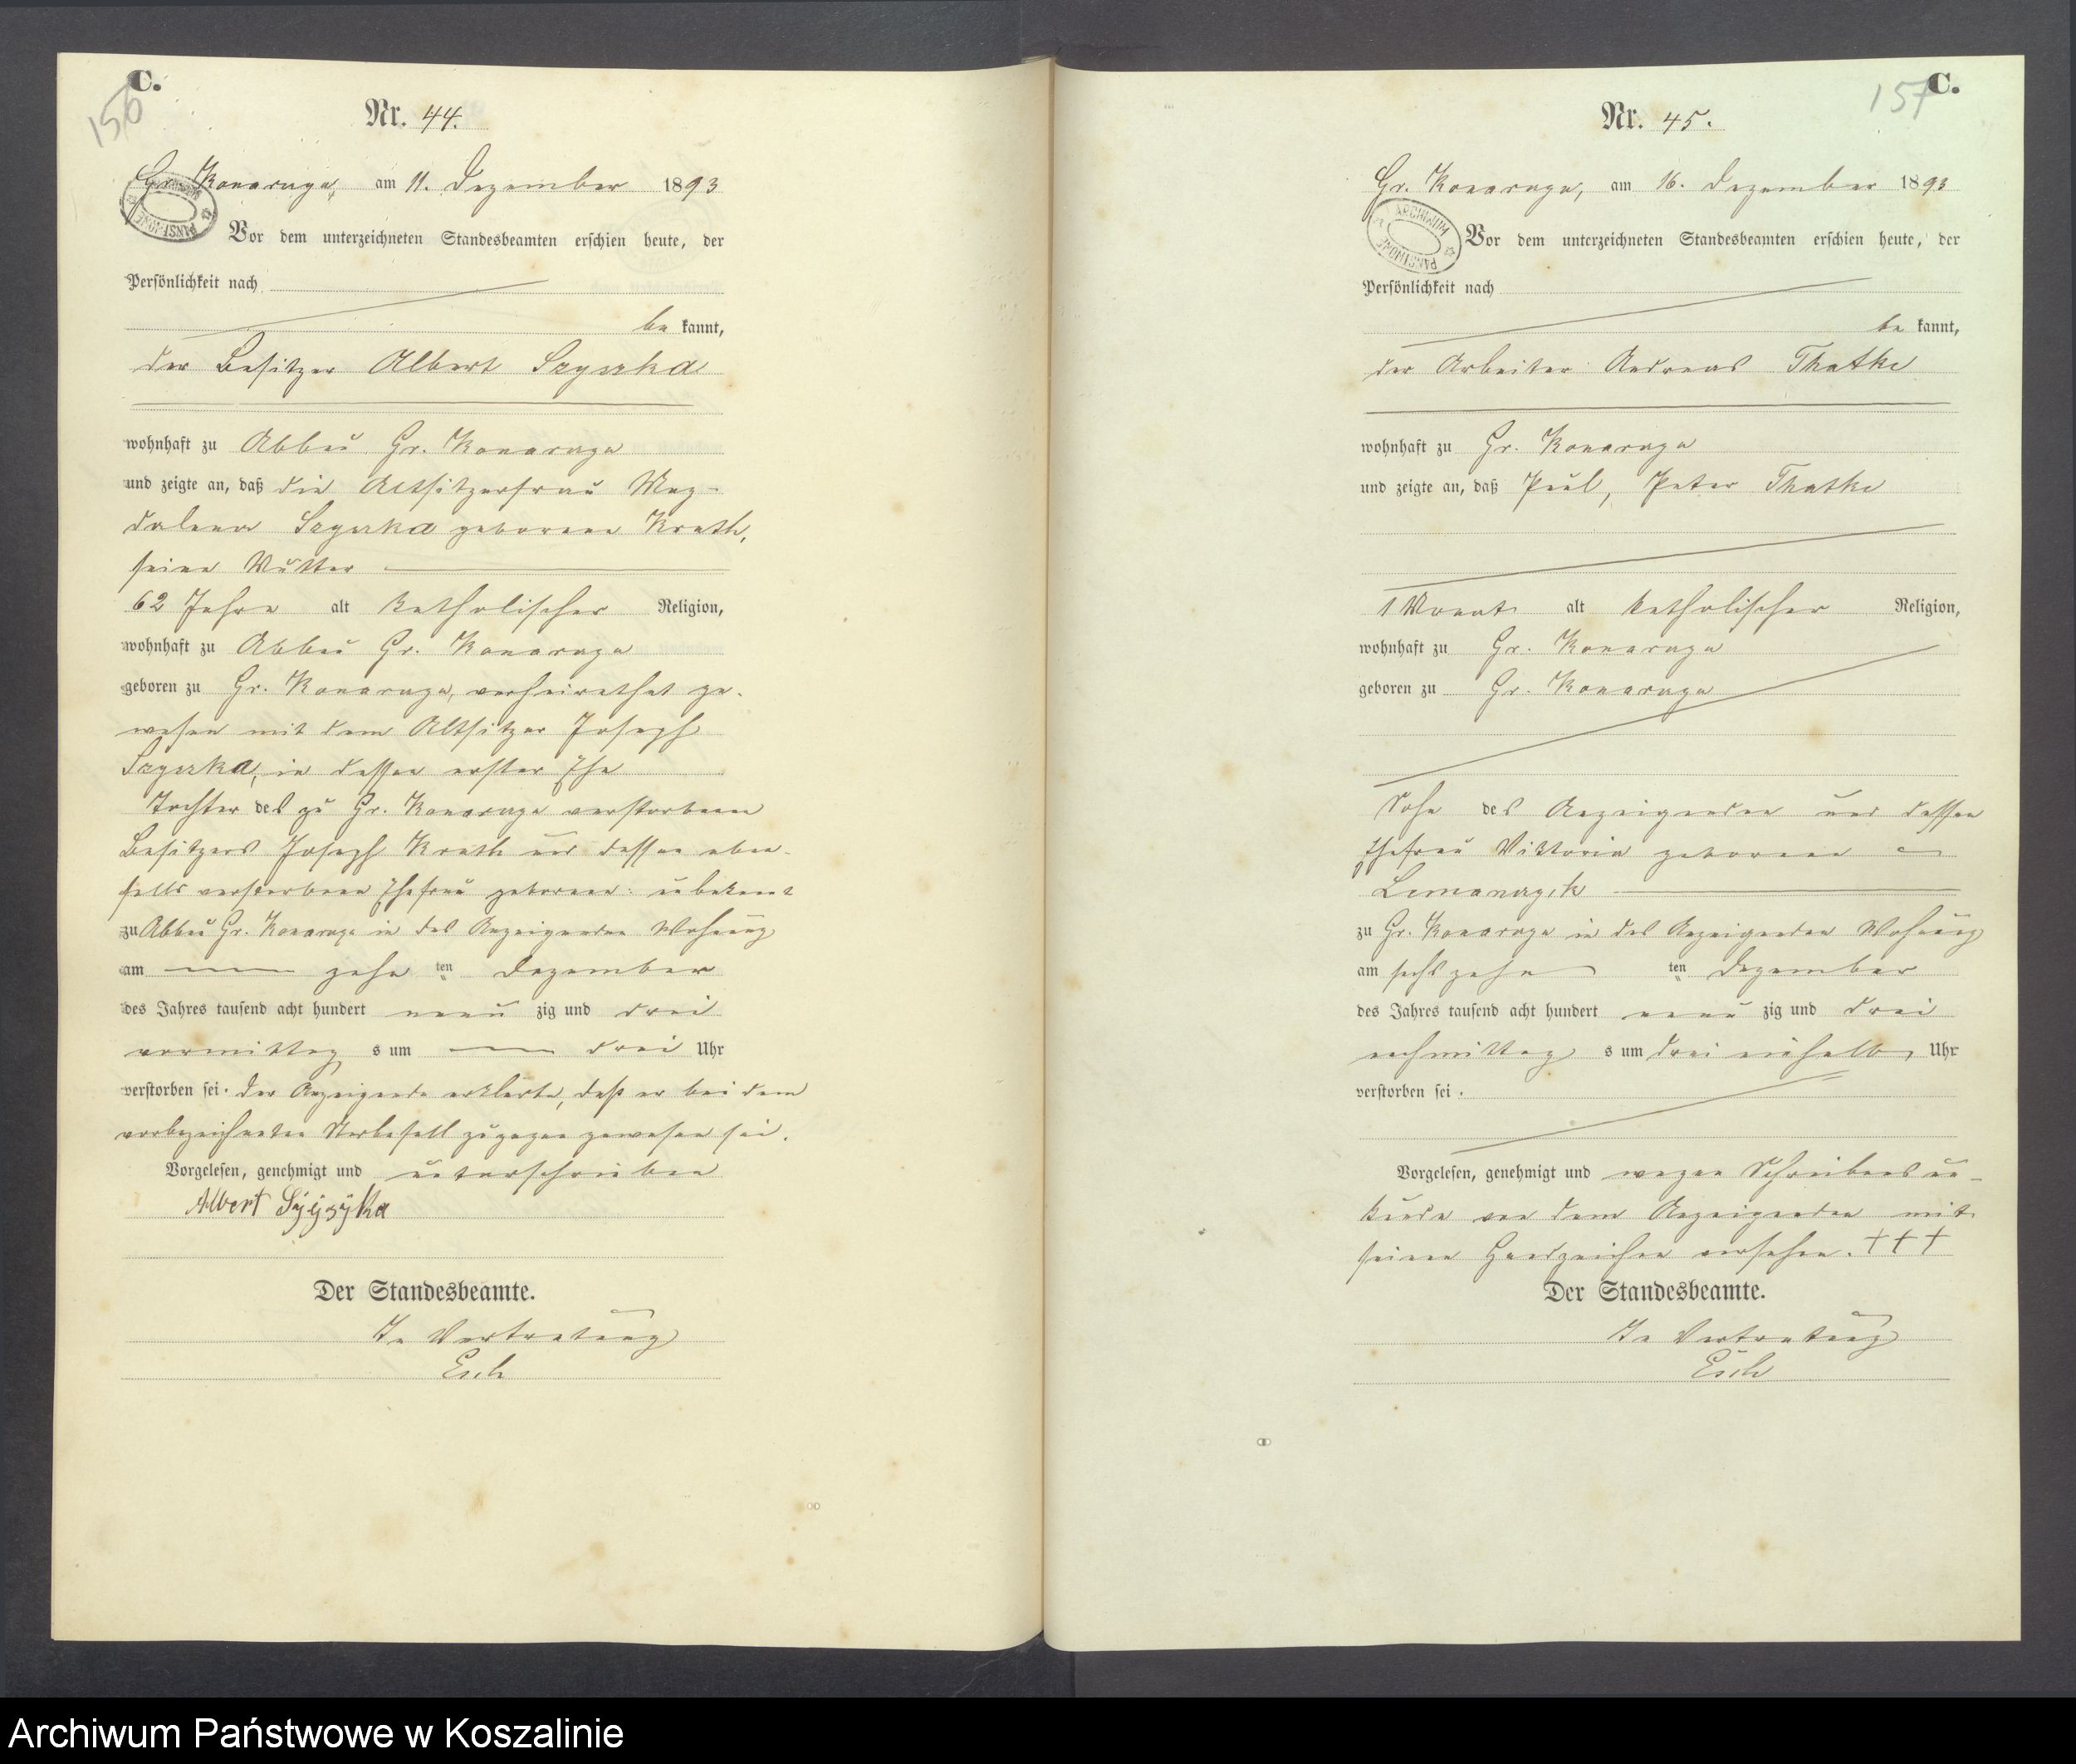 C.
156
Nr. 44.
Gr. Konarczyn, am 11. Dezember 1893
Vor dem unterzeichneten Standesbeamten erschien heute, der
Persönlichkeit nach
be kannt,
der Besitzer Albert Szyszka
wohnhaft zu Abbau Gr. Konarczyn
und zeigte an, daß die Altsitzerfrau Mag-
dalena Szyszka geborene Knuth,
seine Mutter
62 Jahre alt katholischer Religion,
wohnhaft zu Abbau Gr. Konarczyn
geboren zu Gr. Konarczyn, verheirathet ge-
wesen mit dem Altsitzer Joseph
Szyszka, in dessen erster Ehe
Tochter des zu Gr. Konarczyn verstorbenen
Besitzers Joseph und dessen eben-
falls verstorbenen Ehefrau geborene unbekannt
zu Abbau Gr. Konarczyn in des Anzeigenden Wohnung
am zehn ten Dezember
des Jahres tausend acht hundert neun zig und drei
vormittag s um drei Uhr
verstorben sei. Der Anzeigende erklärte, daß er bei dem
vorbezeichneten Sterbefall zugegen gewesen sei.
Vorgelesen, genehmigt und unterschrieben
Albert
Der Standesbeamte.
In Vertretung
Esch
C.
157
Nr. 45.
Gr. Konarczyn, am 16. Dezember 1893
Vor dem unterzeichneten Standesbeamten erschien heute, der
Persönlichkeit nach
be kannt,
der Arbeiter Andreas Thatke
wohnhaft zu Gr. Konarczyn
und zeigte an, daß Paul, Peter Thatke
1 Monat alt katholischer Religion,
wohnhaft zu Gr. Konarczyn
geboren zu Gr. Konarczyn
Sohn des Anzeigenden und dessen
Ehefrau Viktoria geborene
zu Gr. Konarczyn in des Anzeigenden Wohnung
am sechszehn ten Dezember
des Jahres tausend acht hundert neun zig und drei
nachmittag s um drei einhalb Uhr
verstorben sei.
Vorgelesen, genehmigt und wegen Schreibensun-
kunde von dem Anzeigenden mit
seinen Handzeichen versehen. +++
Der Standesbeamte.
In Vertretung
Esch
Archiwum Państwowe w Koszalinie